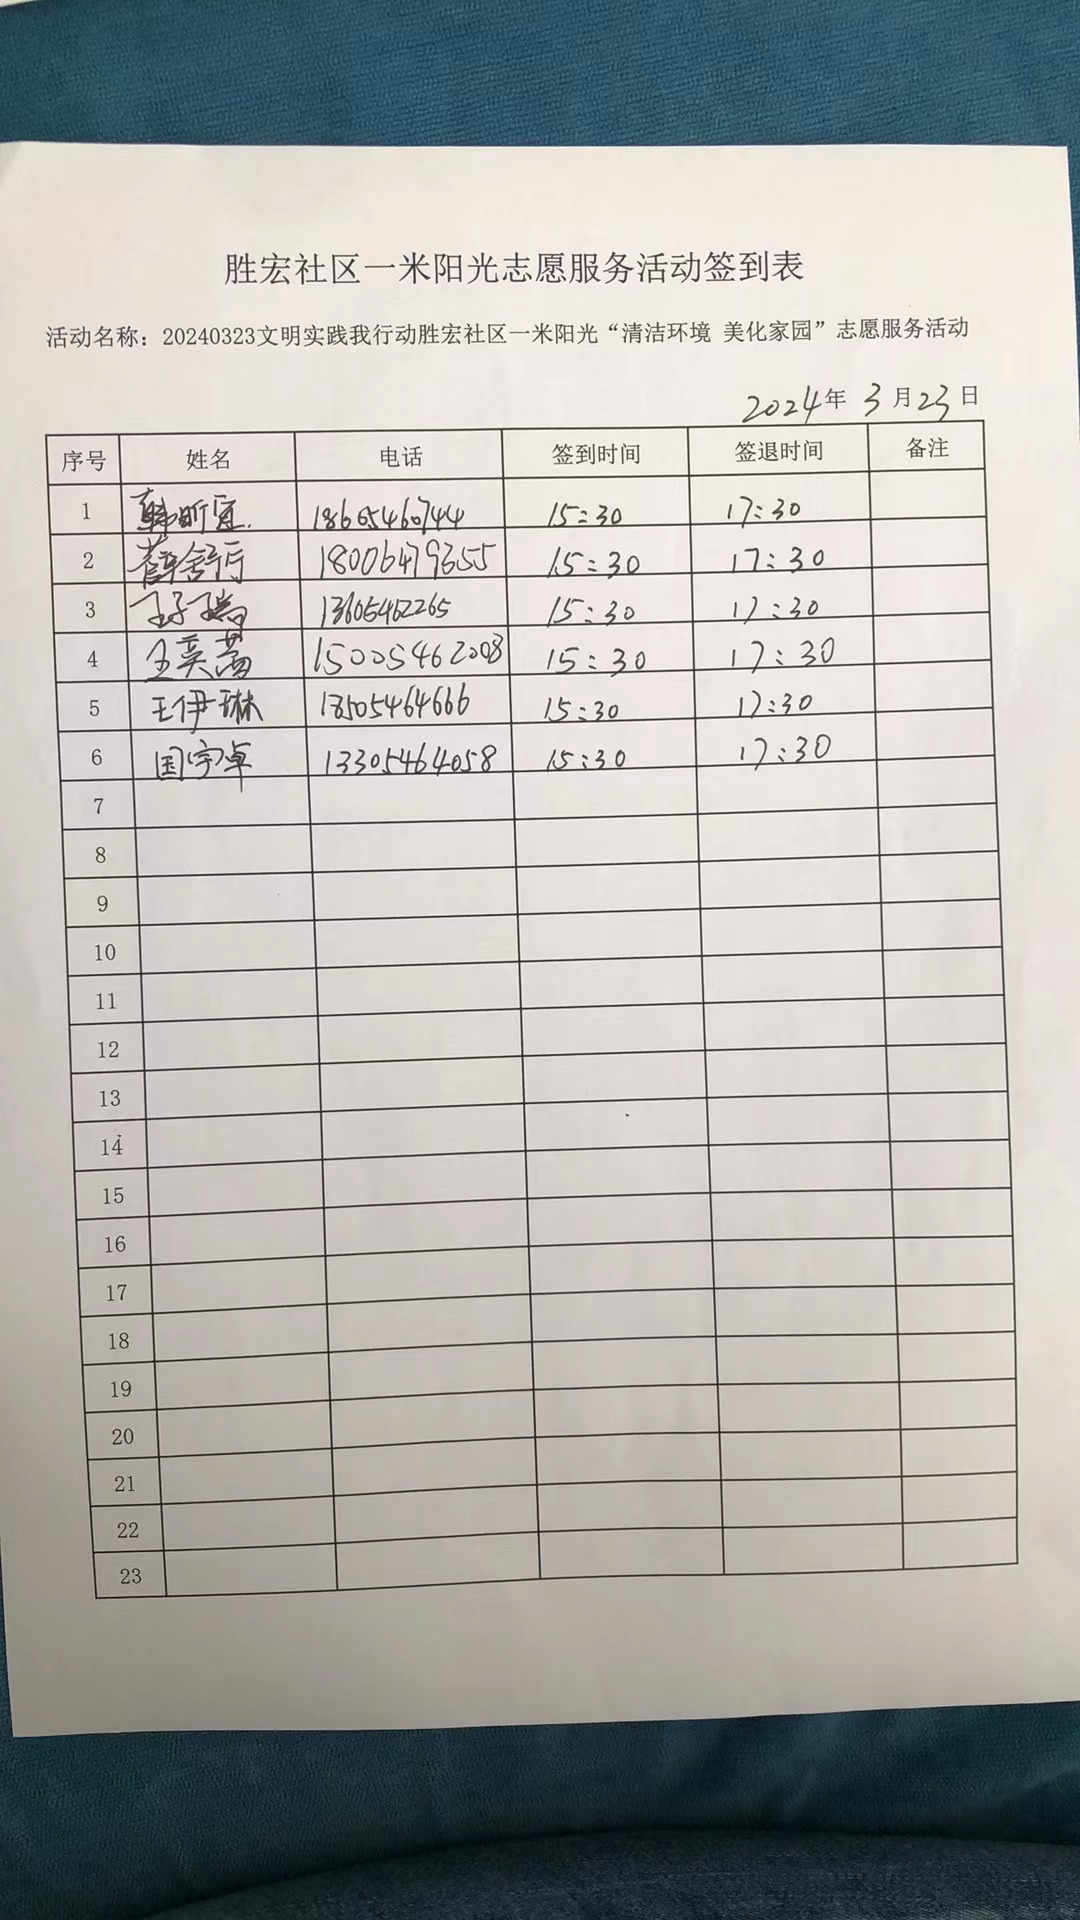 胜宏社区一米阳光志愿服务活动签到表
活动名称：20240323文明实践我行动胜宏社区一米阳光“清洁环境 美化家园”志愿服务活动
2024年 3月23日
序号 姓名 电话 签到时间 签退时间 备注
1 韩昕宜 18605460744 15:30 17:30
2 薛舒厅 18006479355 15:30 17:30
3 王子瑞 13605462265 15:30 17:30
4 王奕菡 15005462008 15:30 17:30
5 王伊琳 18505464666 15:30 17:30
6 国宇卓 13305464058 15:30 17:30
7
8
9
10
11
12
13
14
15
16
17
18
19
20
21
22
23